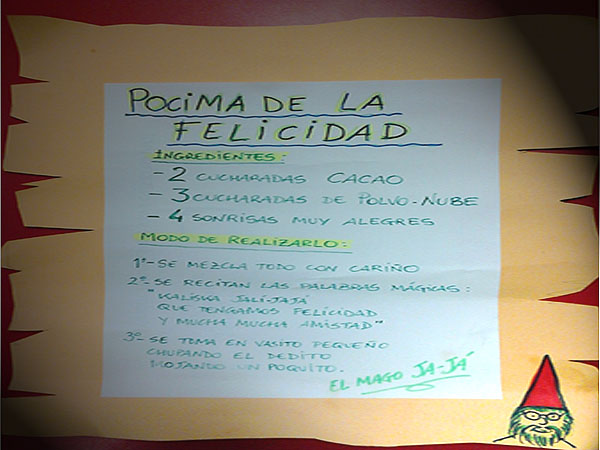 POCIMA DE LA
FELICIDAD
INGREDIENTES:
- 2 CUCHARADAS CACAO
- 3 CUCHARADAS DE POLVO-NUBE
- 4 SONRISAS MUY ALEGRES
MODO DE REALIZARLO:
1º- SE MEZCLA TODO CON CARIÑO
2º- SE RECITAN LAS PALABRAS MÁGICAS:
"KALISKA JALI-JAJÁ
QUE TENGAMOS FELICIDAD
Y MUCHA MUCHA AMISTAD"
3º- SE TOMA EN VASITO PEQUEÑO
CHUPANDO EL DEDITO
MOJANDO UN POQUITO.
EL MAGO JA-JÁ